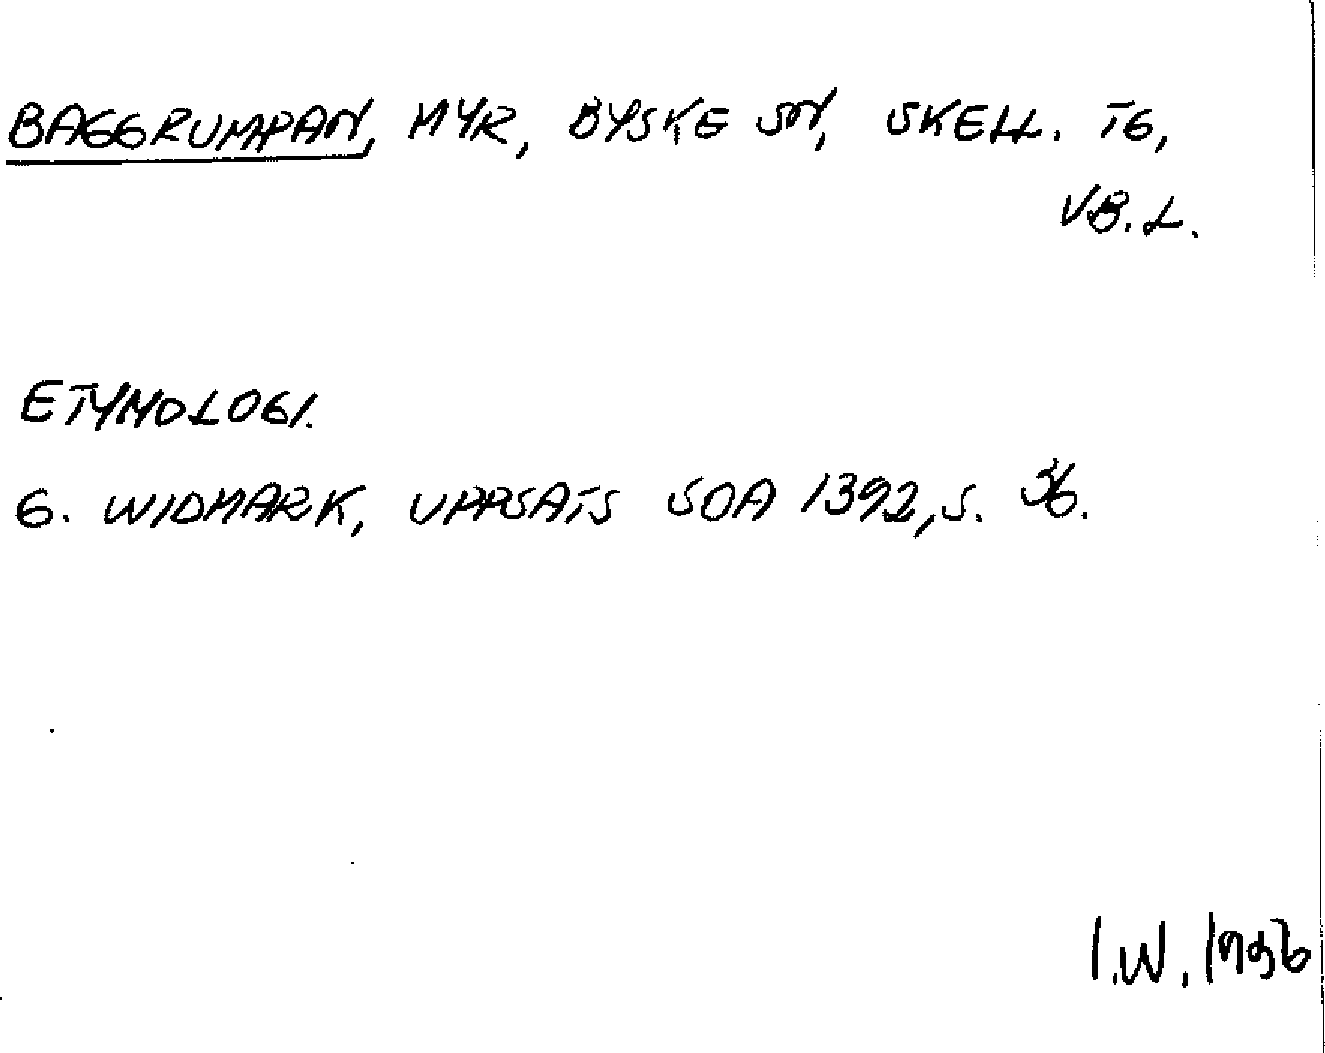 BAGGRUMPAN, MYR, BYSKE SN, SKELL. TG,
VB.L.
ETYMOLOGI.
G. WIDMARK, UPPSATS SOA 1392, S. 36.
I.W. 1996